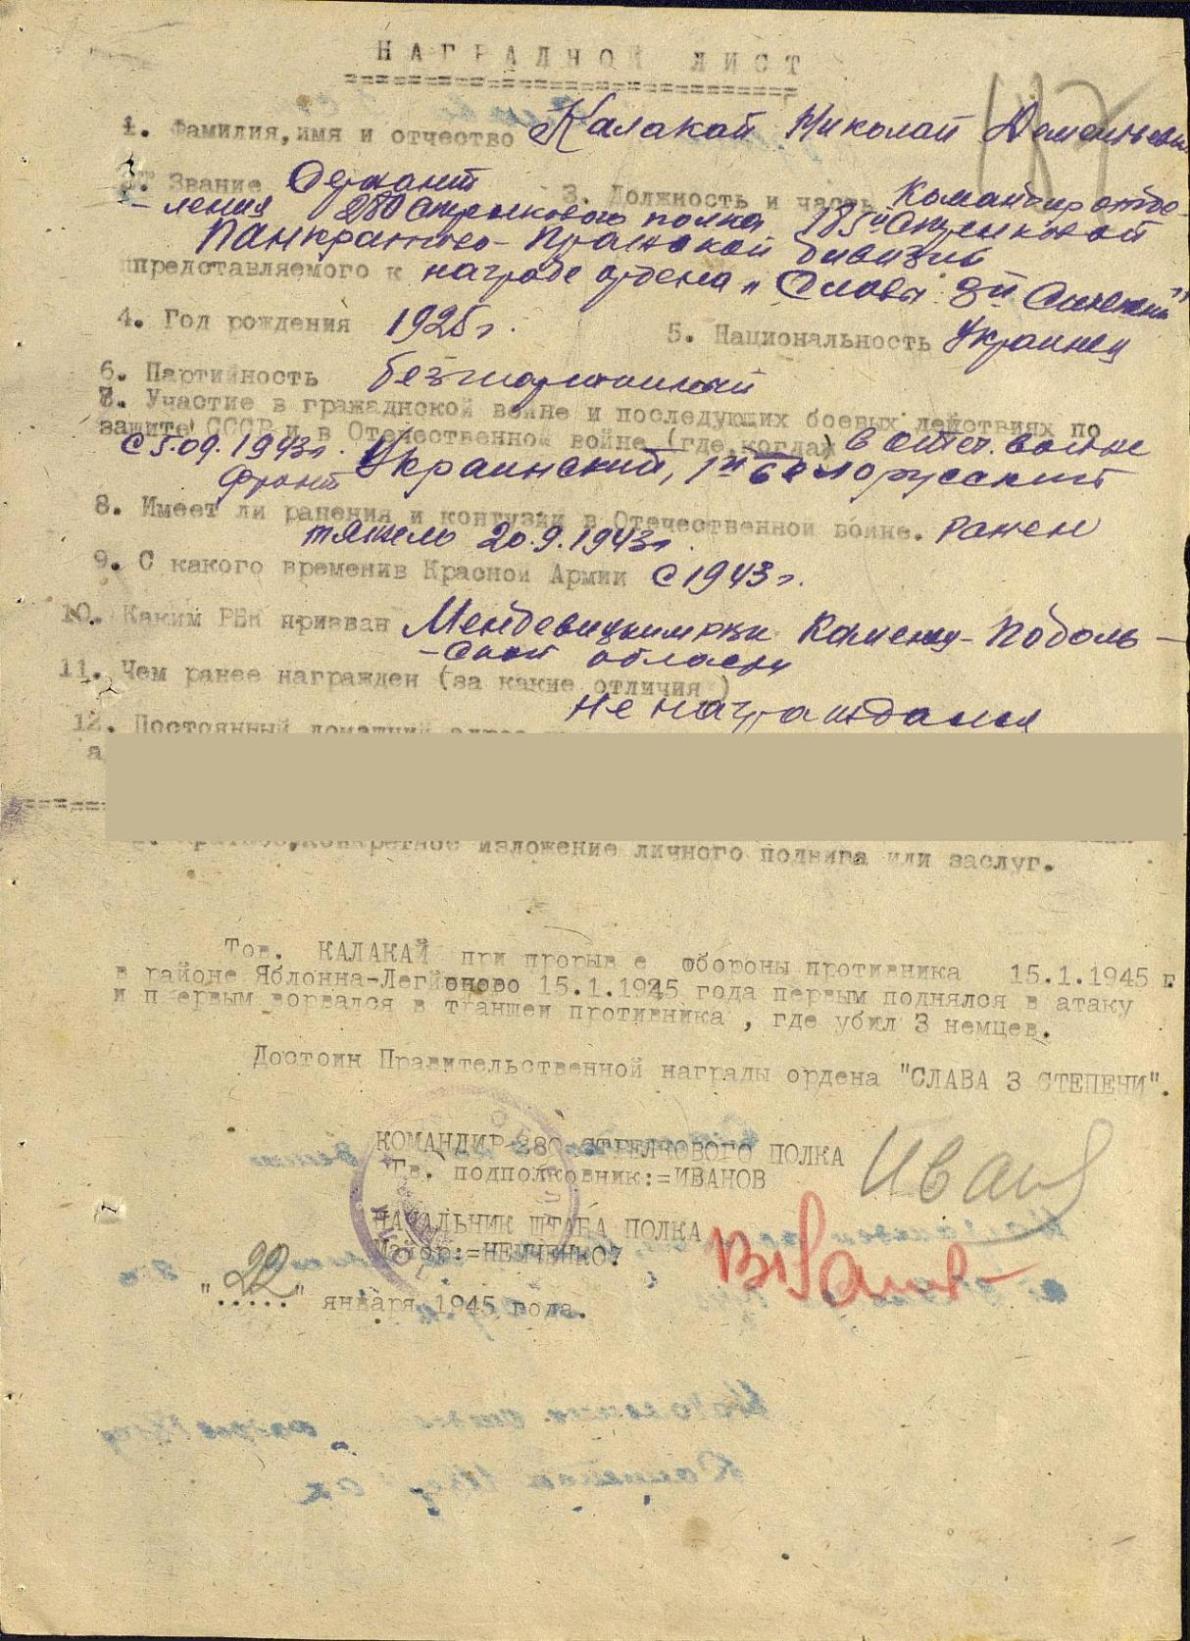 НАГРАДНОЙ ЛИСТ
1. Фамилия, имя и отчество Калакай Николай
2. Звание Сержант 3. Должность и часть Командир отде-
-ления 280 Стрелкового полка 185й Стрелковой
Панкратово-Пражской дивизии
представляемого к награде ордена "Славы 3й Степени"
4. Год рождения 1925г. 5. Национальность Украинец
6. Партийность безпартийный
7. Участие в гражданской войне и последующих боевых действиях по
защите СССР и в Отечественной войне (где, когда) в отеч. войне
с 5.09.1943г. Украинский, 1й Белорусский
фронт
8. Имеет ли ранения и контузии в Отечественной войне. Ранен
тяжело 20.9.1943г.
9. С какого времени в Красной Армии с 1943г.
10. Каким РВК призван РВК Каменец-Подоль-
-ской области
11. Чем ранее награжден (за какие отличия)
не награждался
12. Постоянный домашний
конкретное изложение личного подвига или заслуг.
Тов. КАЛАКАЙ при прорыв е обороны противника 15.1.1945 г.
в районе Яблонна-Легйоново 15.1.1945 года первым поднялся в атаку
и п ервым ворвался в траншеи противника, где убил 3 немцев.
Достоин Правительственной награды ордена "СЛАВА 3 СТЕПЕНИ".
КОМАНДИР 280 СТРЕЛКОВОГО ПОЛКА
Гв. подполковник:=ИВАНОВ
НАЧАЛЬНИК ШТАБА ПОЛКА
Майор:=НЕМЧЕНКО7
"22" января 1945 года.